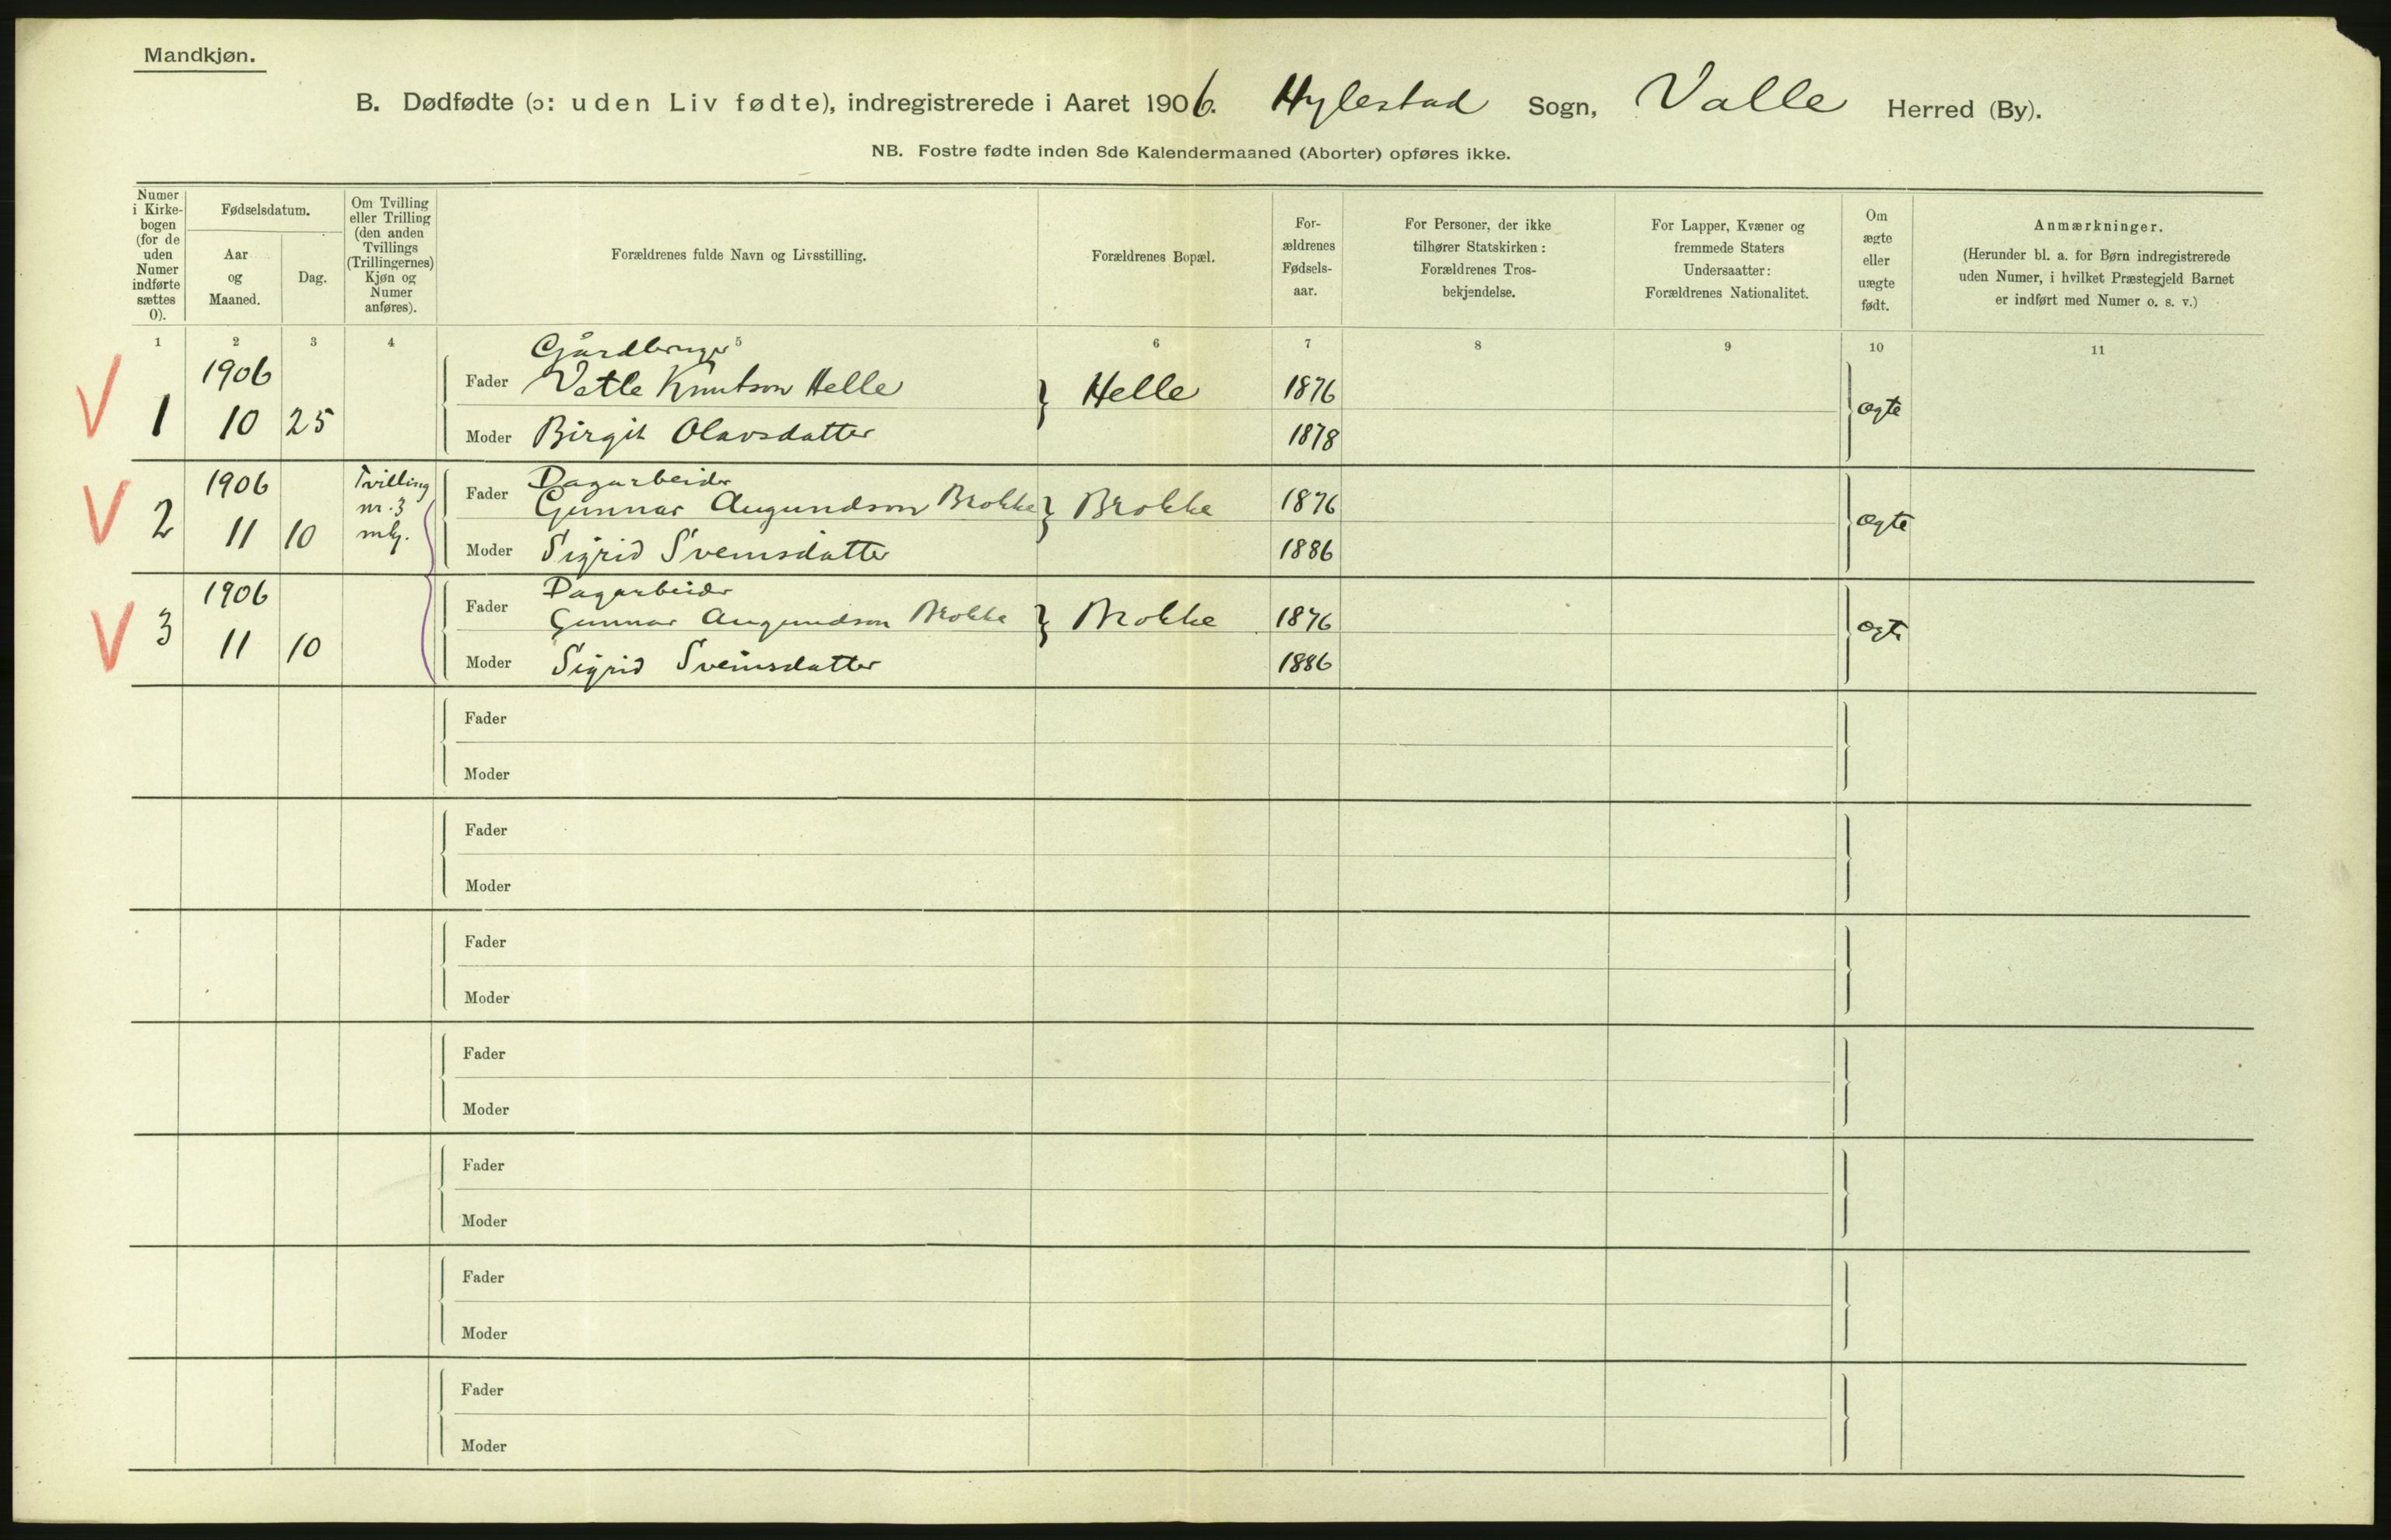 Mandkjøn.
B. Dødfødte (ɔ: uden Liv fødte), indregistrerede i Aaret 1906. Hylestad Sogn, Valle Herred (By).
NB. Fostre fødte inden 8de Kalendermaaned (Aborter) opføres ikke.
Numer
i Kirke-
bogen
(for de
uden
Numer
indførte
sættes
0).
Fødselsdatum.
Aar
og
Maaned.
Dag.
Om Tvilling
eller Trilling
(den anden
Tvillings
(Trillingernes)
Kjøn og
Numer
anføres).
Forældrenes fulde Navn og Livsstilling.
Forældrenes Bopæl.
For-
ældrenes
Fødsels-
aar.
For Personer, der ikke
tilhører Statskirken:
Forældrenes Tros-
bekjendelse.
For Lapper, Kvæner og
fremmede Staters
Undersaatter:
Forældrenes Nationalitet.
Om
ægte
eller
uægte
født.
Anmærkninger.
(Herunder bl. a. for Børn indregistrerede
uden Numer, i hvilket Præstegjeld Barnet
er indført med Numer o. s. v.)
1 2 3 4 5 6 7 8 9 10 11
Gårdbruger
1906 Fader Vetle Knutson Helle Helle 1876 ægte
1 10 25 Moder Birgit Olavsdatter 1878
1906 Tvilling Dagarbeider
nr. 3 Fader Gunnar Augundson Brokke Brokke 1876 ægte
2 11 10 mkj. Moder Sigrid Sveinsdatter 1886
1906 Dagarbeider
Fader Gunnar Augundson Brokke Brokke 1876 ægte
3 11 10 Moder Sigrid Sveinsdatter 1886
Fader
Moder
Fader
Moder
Fader
Moder
Fader
Moder
Fader
Moder
Fader
Moder
Fader
Moder